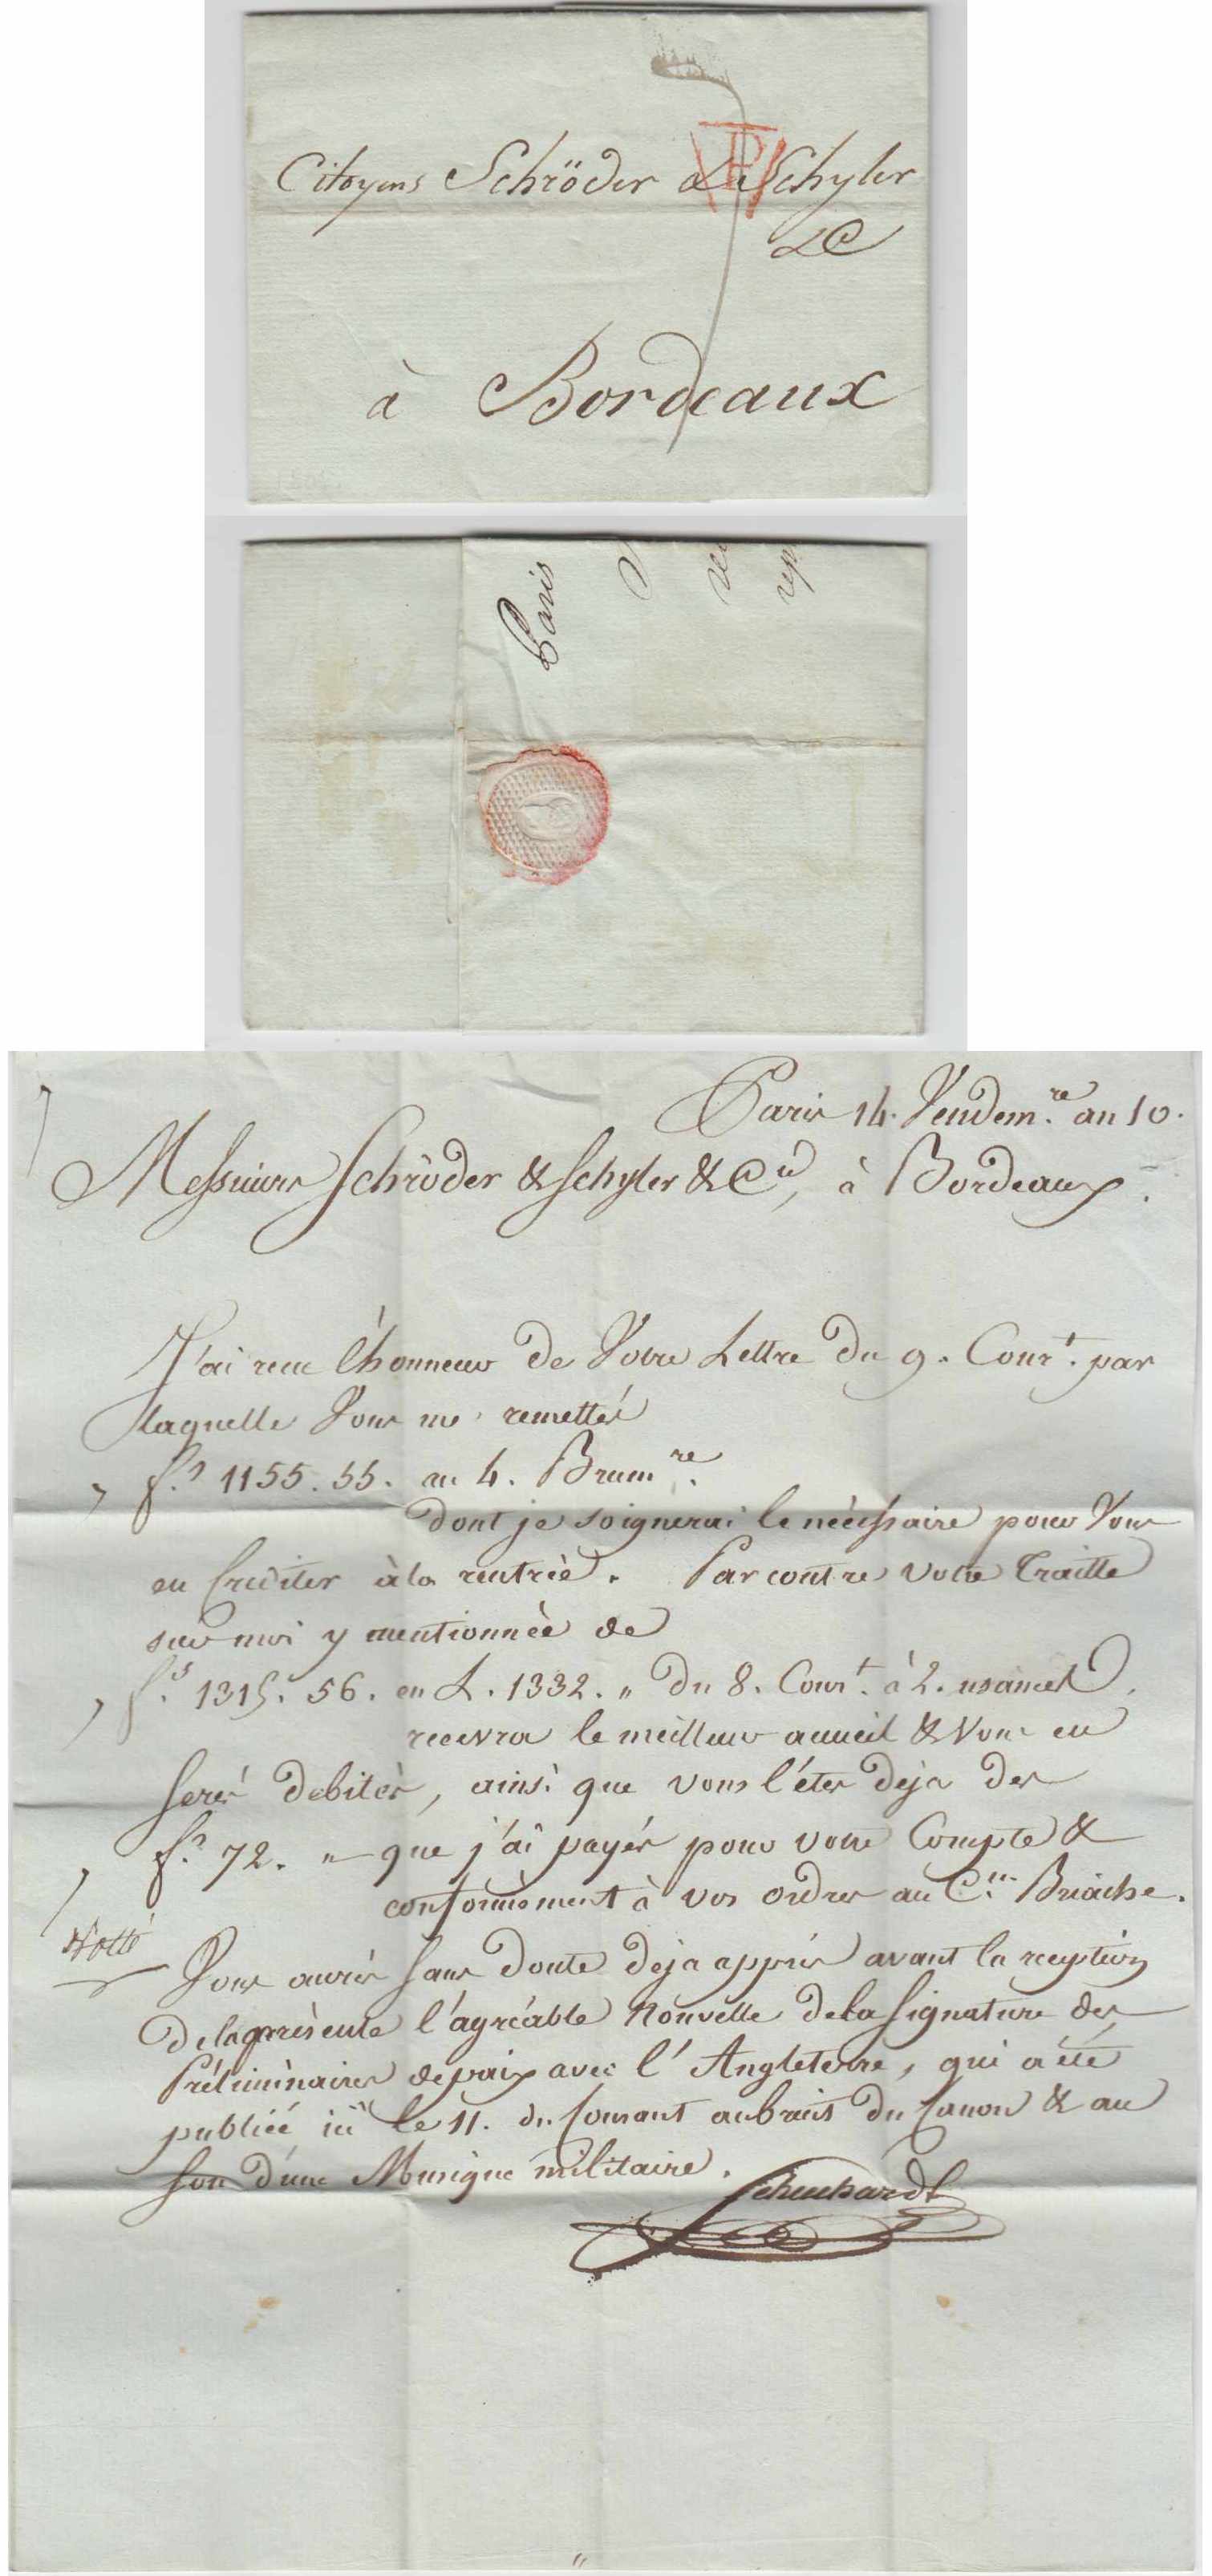 Citoyens Schröder & Schyler
P
&C
à Bordeaux
Paris
Paris 14. Vendem.re an 10.
Messieurs Schröder & Schyler & Cie, à Bordeaux.
J'ai recu l'honneur de Votre Lettre du 9. Cour.t par
laquelle Vous me remettés
f.s 1155. 55. au 4. Brum.re
dont je soignerai le nécéssaire pour Vous
en Créditer à la rentrée. Par contre votre Traitte
sur moi y mentionnée de
f.s 1315. 56. en L. 1332. " du 8. Cour.t à 2. usances.
recevra le meilleur acueil & Vous en
serés debités, ainsi que vous l'étes deja des
f.s 72. " que j'ai payés pour votre Compte &
conformément à vos ordres au C.en
Notté
Vous aurés sans doute deja appris avant la reception
de la présente l'agréable Nouvelle de la Signature des
Préliminaires de paix avec l'Angleterre, qui a été
publiée ici le 11. du Courant au bruit du Canon & au
son d'une Musique militaire.
Schuchardt